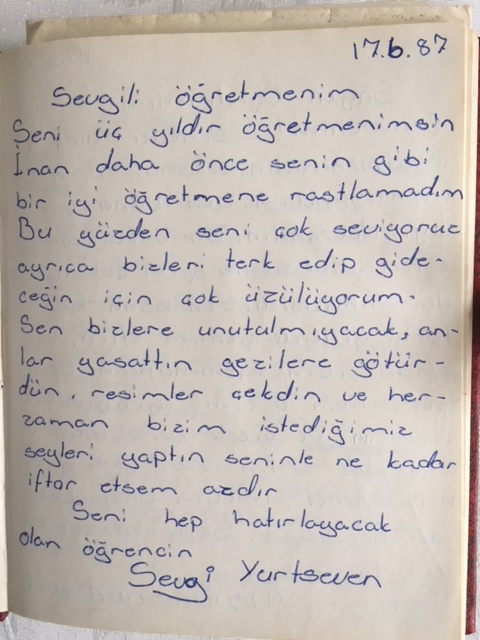 17.6.87
Sevgili öğretmenim
Seni üç yıldır öğretmenimsin
İnan daha önce senin gibi
bir iyi öğretmene rastlamadım
Bu yüzden seni çok seviyoruz
ayrıca bizleri terk edip gide-
ceğin için çok üzülüyorum.
Sen bizlere unutulmıyacak, an-
lar yaşattın gezilere götür-
dün, resimler çekdin ve her-
zaman bizim istediğimiz
şeyleri yaptın seninle ne kadar
iftar etsem azdır
Seni hep hatırlayacak
olan öğrencin
Sevgi Yurtseven